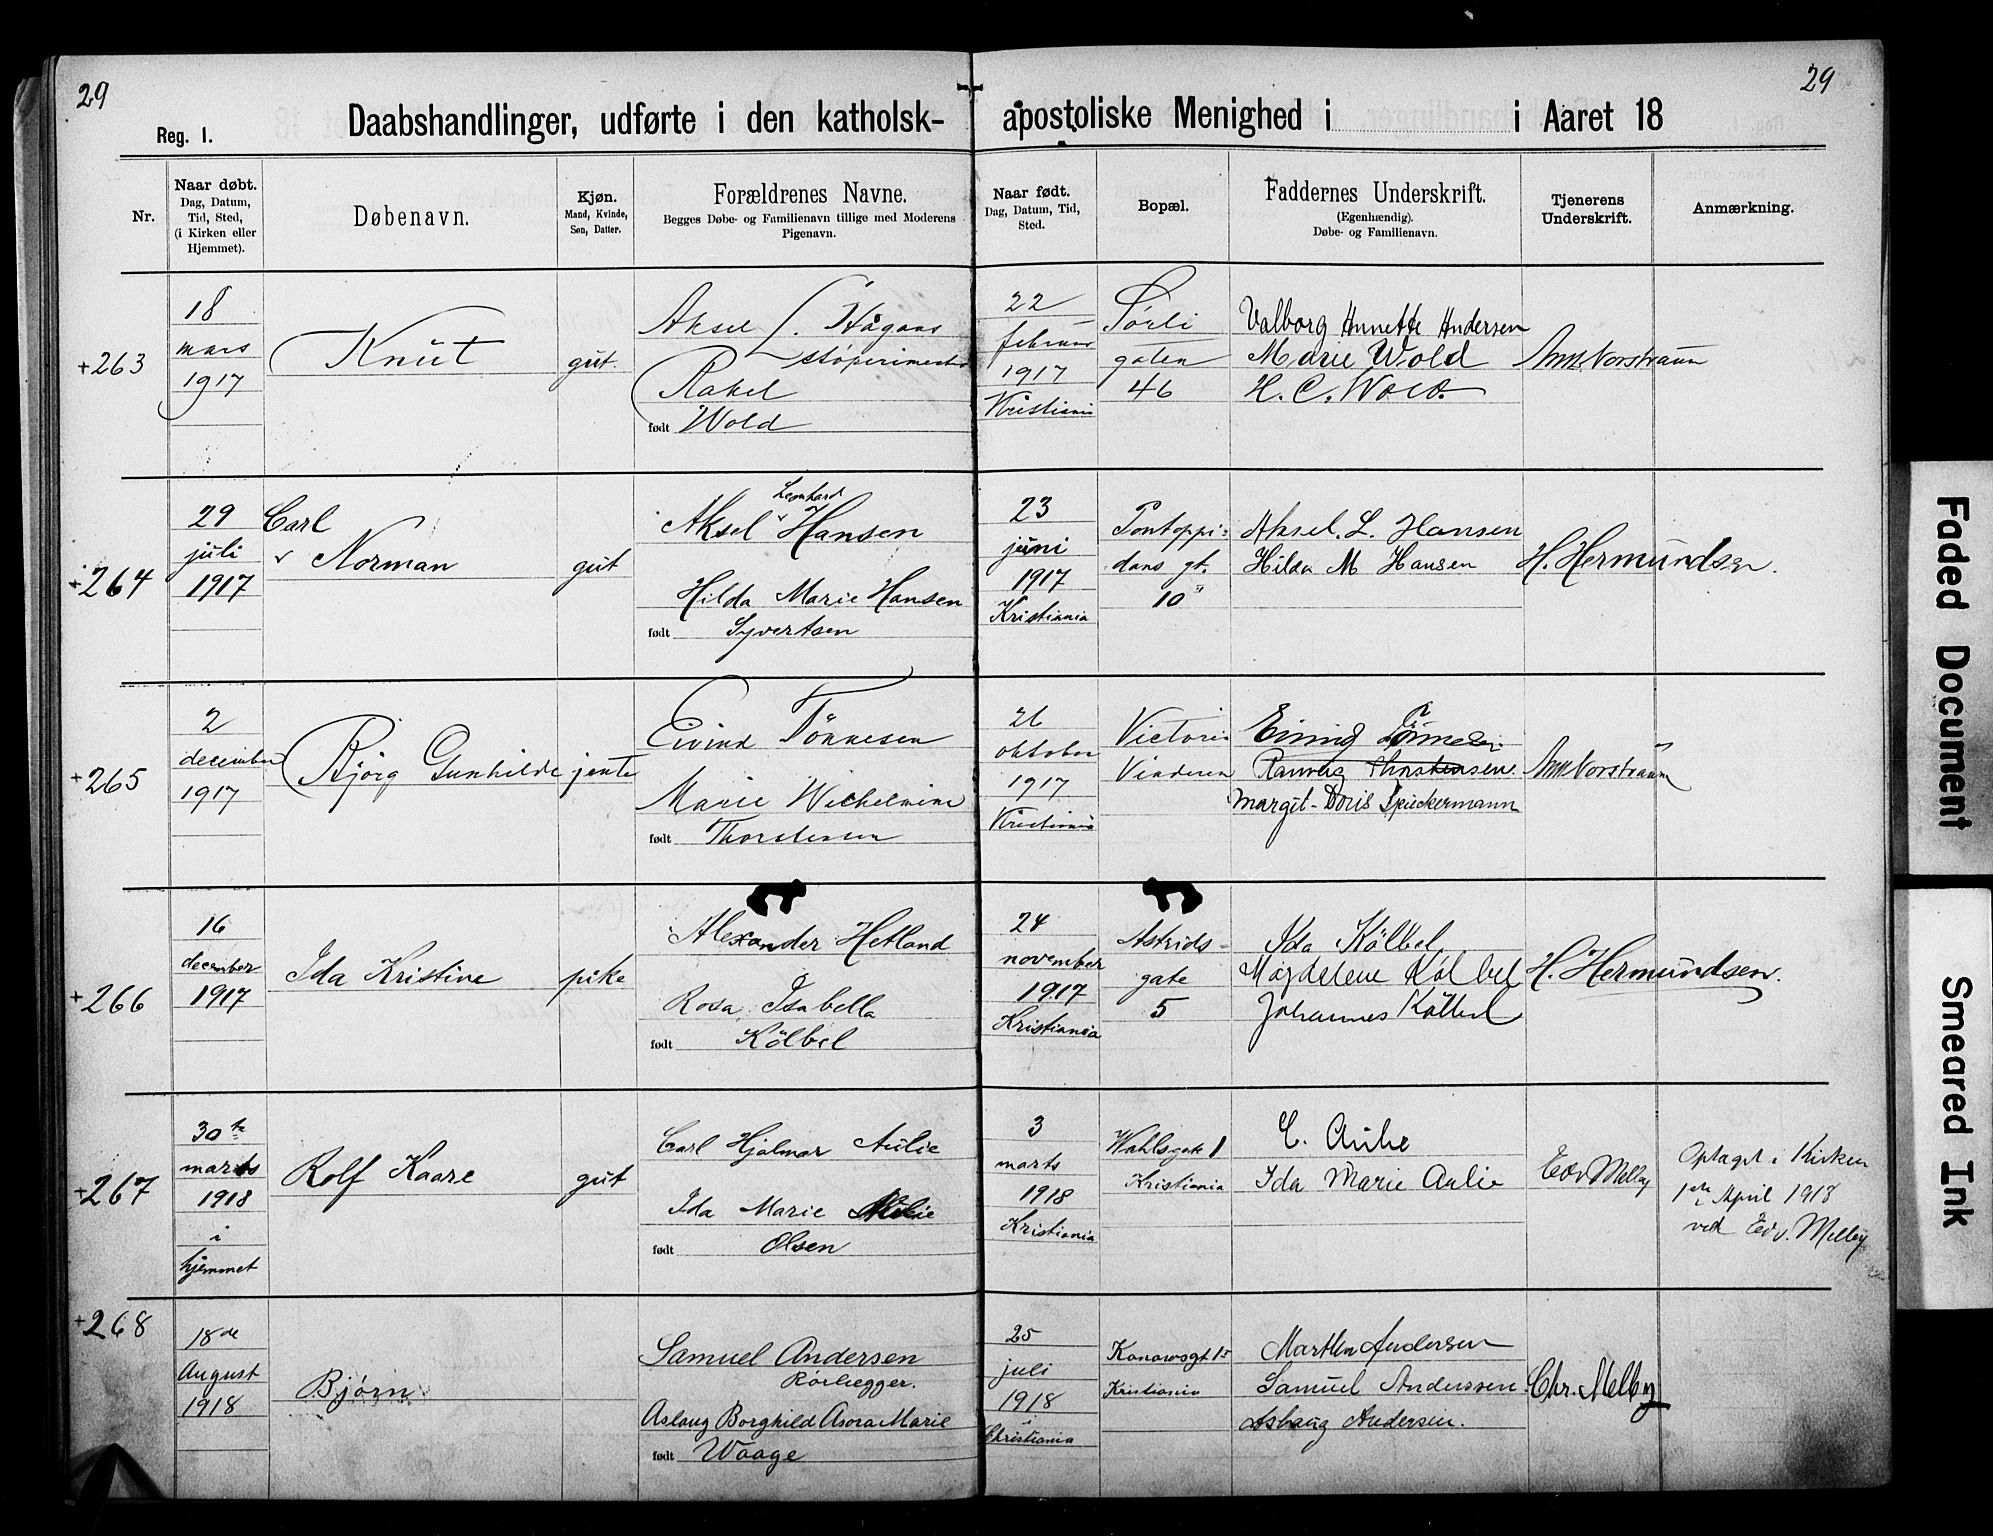 29
29
Reg. 1.
Daabshandlinger, udførte i den katholsk-apostoliske Menighed i i Aaret 18
Nr.
Naar døbt.
Dag, Datum,
Tid, Sted,
(i Kirken eller
Hjemmet).
Døbenavn.
Kjøn.
Mand, Kvinde,
Søn, Datter.
Forældrenes Navne.
Begges Døbe- og Familienavn tillige med Moderens
Pigenavn.
Naar født.
Dag, Datum, Tid,
Sted.
Bopæl.
Faddernes Underskrift.
(Egenhændig).
Døbe- og Familienavn.
Tjenerens
Underskrift.
Anmærkning.
+263
18
mars
1917
Knut
gut.
Aksel
Rakel
født Wold
22
februar
1917
Kristiania
Sørli
gaten
46
Valborg Annette Andersen
Marie Wold
H. C. Wold.
+264
29
juli
1917
Carl
Norman
gut
Leonhard
Aksel Hansen
Hilda Marie Hansen
født Syvertsen
23
juni
1917
Kristiania
Pontoppi-
dans gt.
10
Aksel. L. Hansen
Hilda M Hansen
H. Hermundsen.
+265
2
december
1917
Bjørg Gunhilde
jente
Eivind Tönnesen
Marie Wilhelmine
født Thorstensen
26
oktober
1917
Kristiania
Victoria
Vinderen
Eivind Tönnesen
Ranveig Thorstensen
Margit-Doris Spieckermann
+266
16
december
1917
Ida Kristine
pike
Alexander Hetland
Rosa Isabella
født Kölbel
24
november
1917
Kristiania
Astrids-
gate
5
Ida Kölbel.
Magdelene Kölbel
Johannes Kölbel
H. Hermundsen.
+267
30te
marts
1918
i
hjemmet
Rolf Kaare
gut
Carl Hjalmar Aulie
Ida Marie Aulie
født Olsen
3
marts
1918
Kristiania
Wahlsgate 1
Kristiania
C. Aulie
Ida Marie Aulie
Edv Melby
Optaget i Kirken
1ste April 1918
ved Edv. Melby
+268
18de
August
1918
Bjørn
Samuel Andersen
Rørlægger.
Aslaug Borghild Asora Marie
født Waage
25
juli
1918
Christiania
Kanowsgt 15
Kristiania
Marthe Andersen
Samuel Anderssen
Aslaug Andersen.
Chr. Melby
Faded Document
Smeared Ink